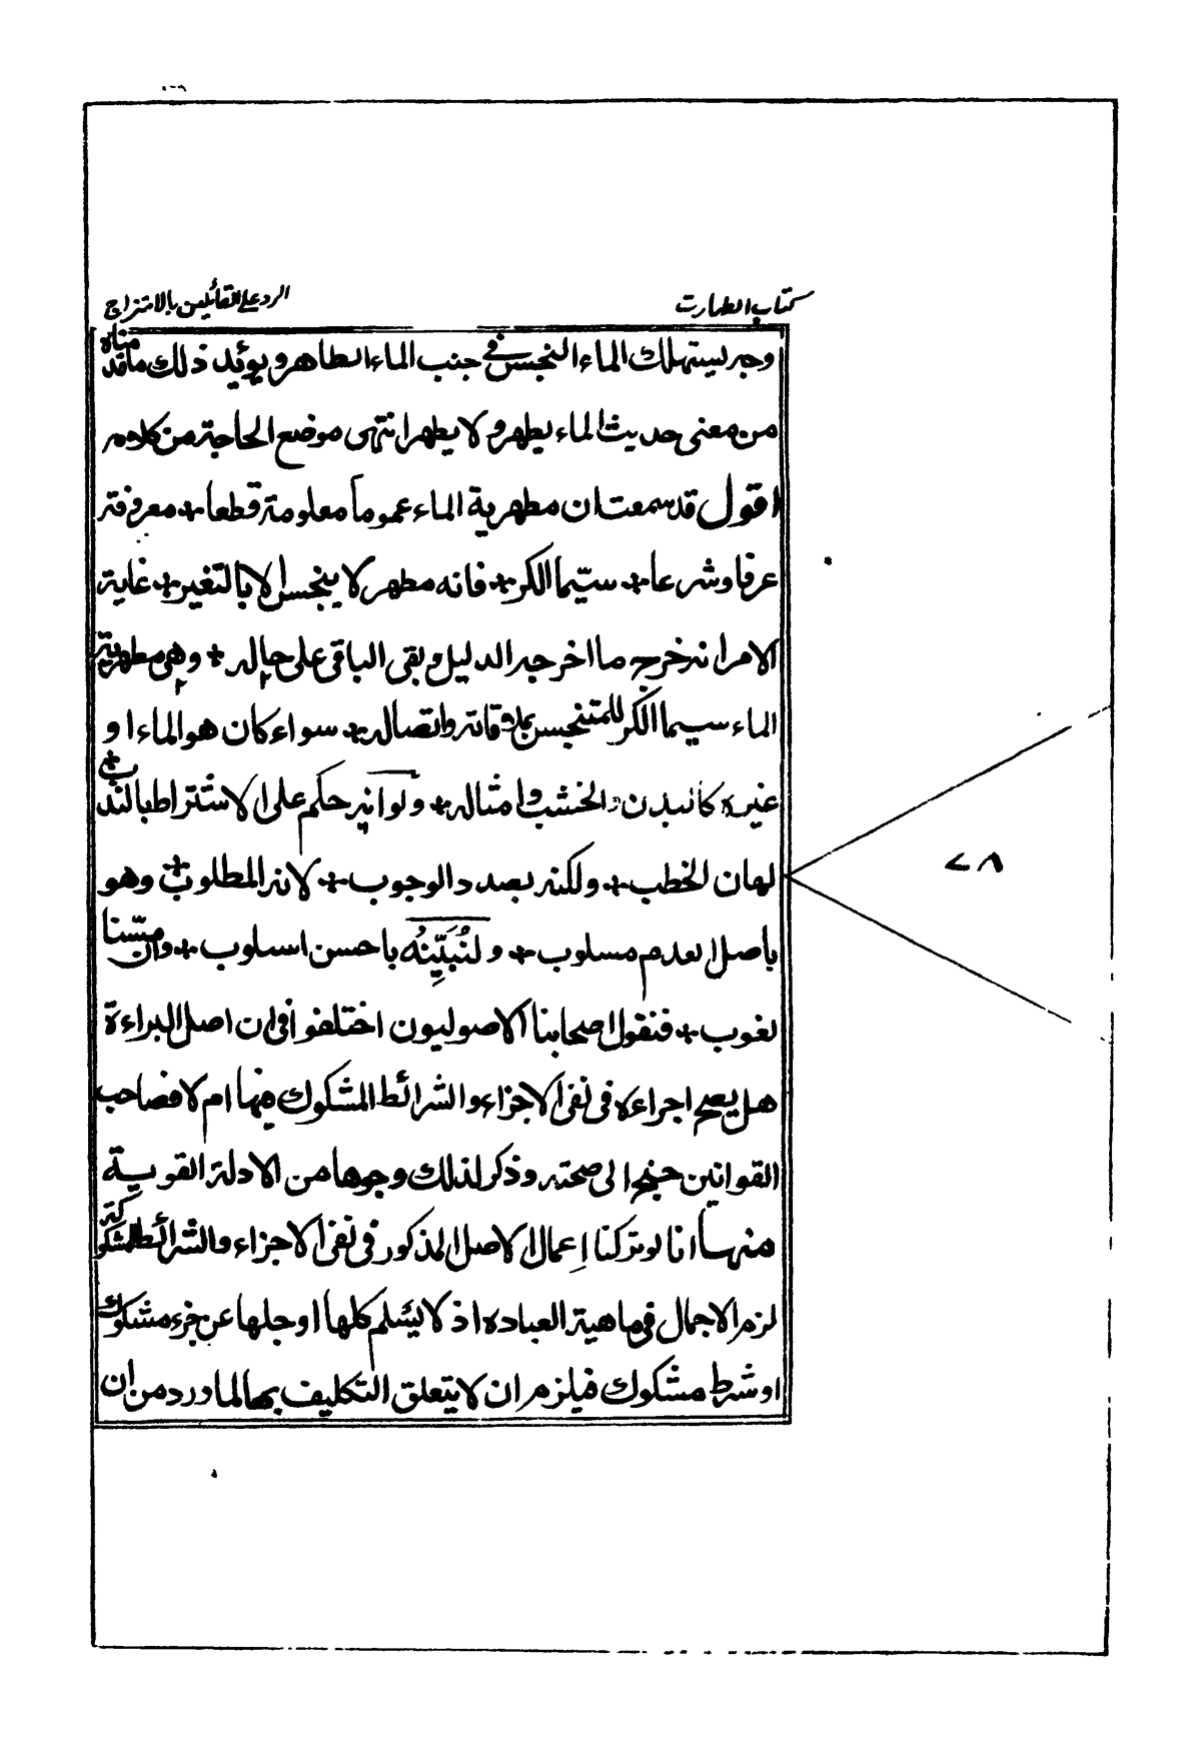 كتاب الطهارت
الرد على القائلين بالامتزاج
وجه يستهلك الماء النجس في جنب الماء الطاهر ويؤيد ذلك ما قدمناه
من معنى حديث الماء يطهر ولا يطهر انتهى موضع الحاجة من كلامه
اقول قد سمعت ان مطهرية الماء عموما معلومة قطعا + معروفة
عرفا وشرعا + سيّما الكر + فانه مطهر لا ينجس الا بالتغير + غاية
الامر انه خرج ما اخرجه الدليل وبقى الباقي على حاله + وهي مطهرية
الماء سيما الكر للمتنجس بملاقاته واتصاله + سواء كان هو الماء او
غيره كالبدن والخشب وامثاله + ولو انه حكم على الاشتراط بالندب +
لهان الخطب + ولكنه بصدد الوجوب + لانه المطلوب + وهو
باصل العدم مسلوب + ولنُبَيِّنُه باحسن اسلوب + وان مسّنا
لغوب + فنقول اصحابنا الاصوليون اختلفوا في ان اصل البراءة
هل يصح اجراءه في نفى الاجزاء والشرائط المشكوك فيها ام لا فصاحب
القوانين جنح الى صحته وذكر لذلك وجوها من الادلة القوية
منها انا لو تركنا اِعمال الاصل المذكور في نفى الاجزاء والشرائط المشكوكة
لزم الاجمال في ماهية العبادة اذ لا يسلم كلها او جلها عن جزء مشكوك
او شرط مشكوك فيلزم ان لا يتعلق التكليف بها لما ورد من ان
٧٨